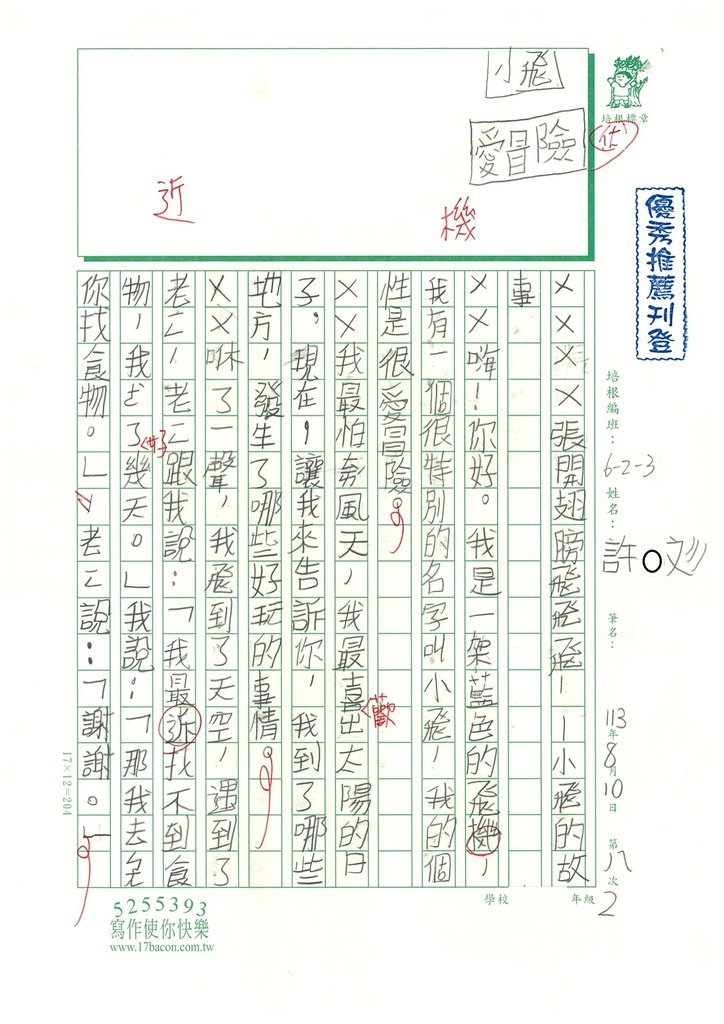 小飛
愛冒險
培根標章
佳
近
機
優秀推薦刊登
培根編班：6-2-3
姓名：許〇妙
筆名：
113年8月10日
第八次
××××張開翅膀飛飛飛——小飛的故
事
××嗨！你好。我是一架藍色的飛機，
我有一個很特別的名字叫小飛，我的個
性是很愛冒險。
××我最怕風天，我最喜歡出太陽的日
子，現在，讓我來告訴你，我到了哪些
地方，發生了哪些好玩的事情。
××咻了一聲，我飛到了天空，遇到了
老ㄧㄥ，老ㄧㄥ跟我說：「我最近找不到食
物，我ㄜ了好幾天。」我說：「那我去
你找食物。」老ㄧㄥ說：「謝謝。」
17×12=204
學校
2年級
5255393
寫作使你快樂
www.17bacon.com.tw